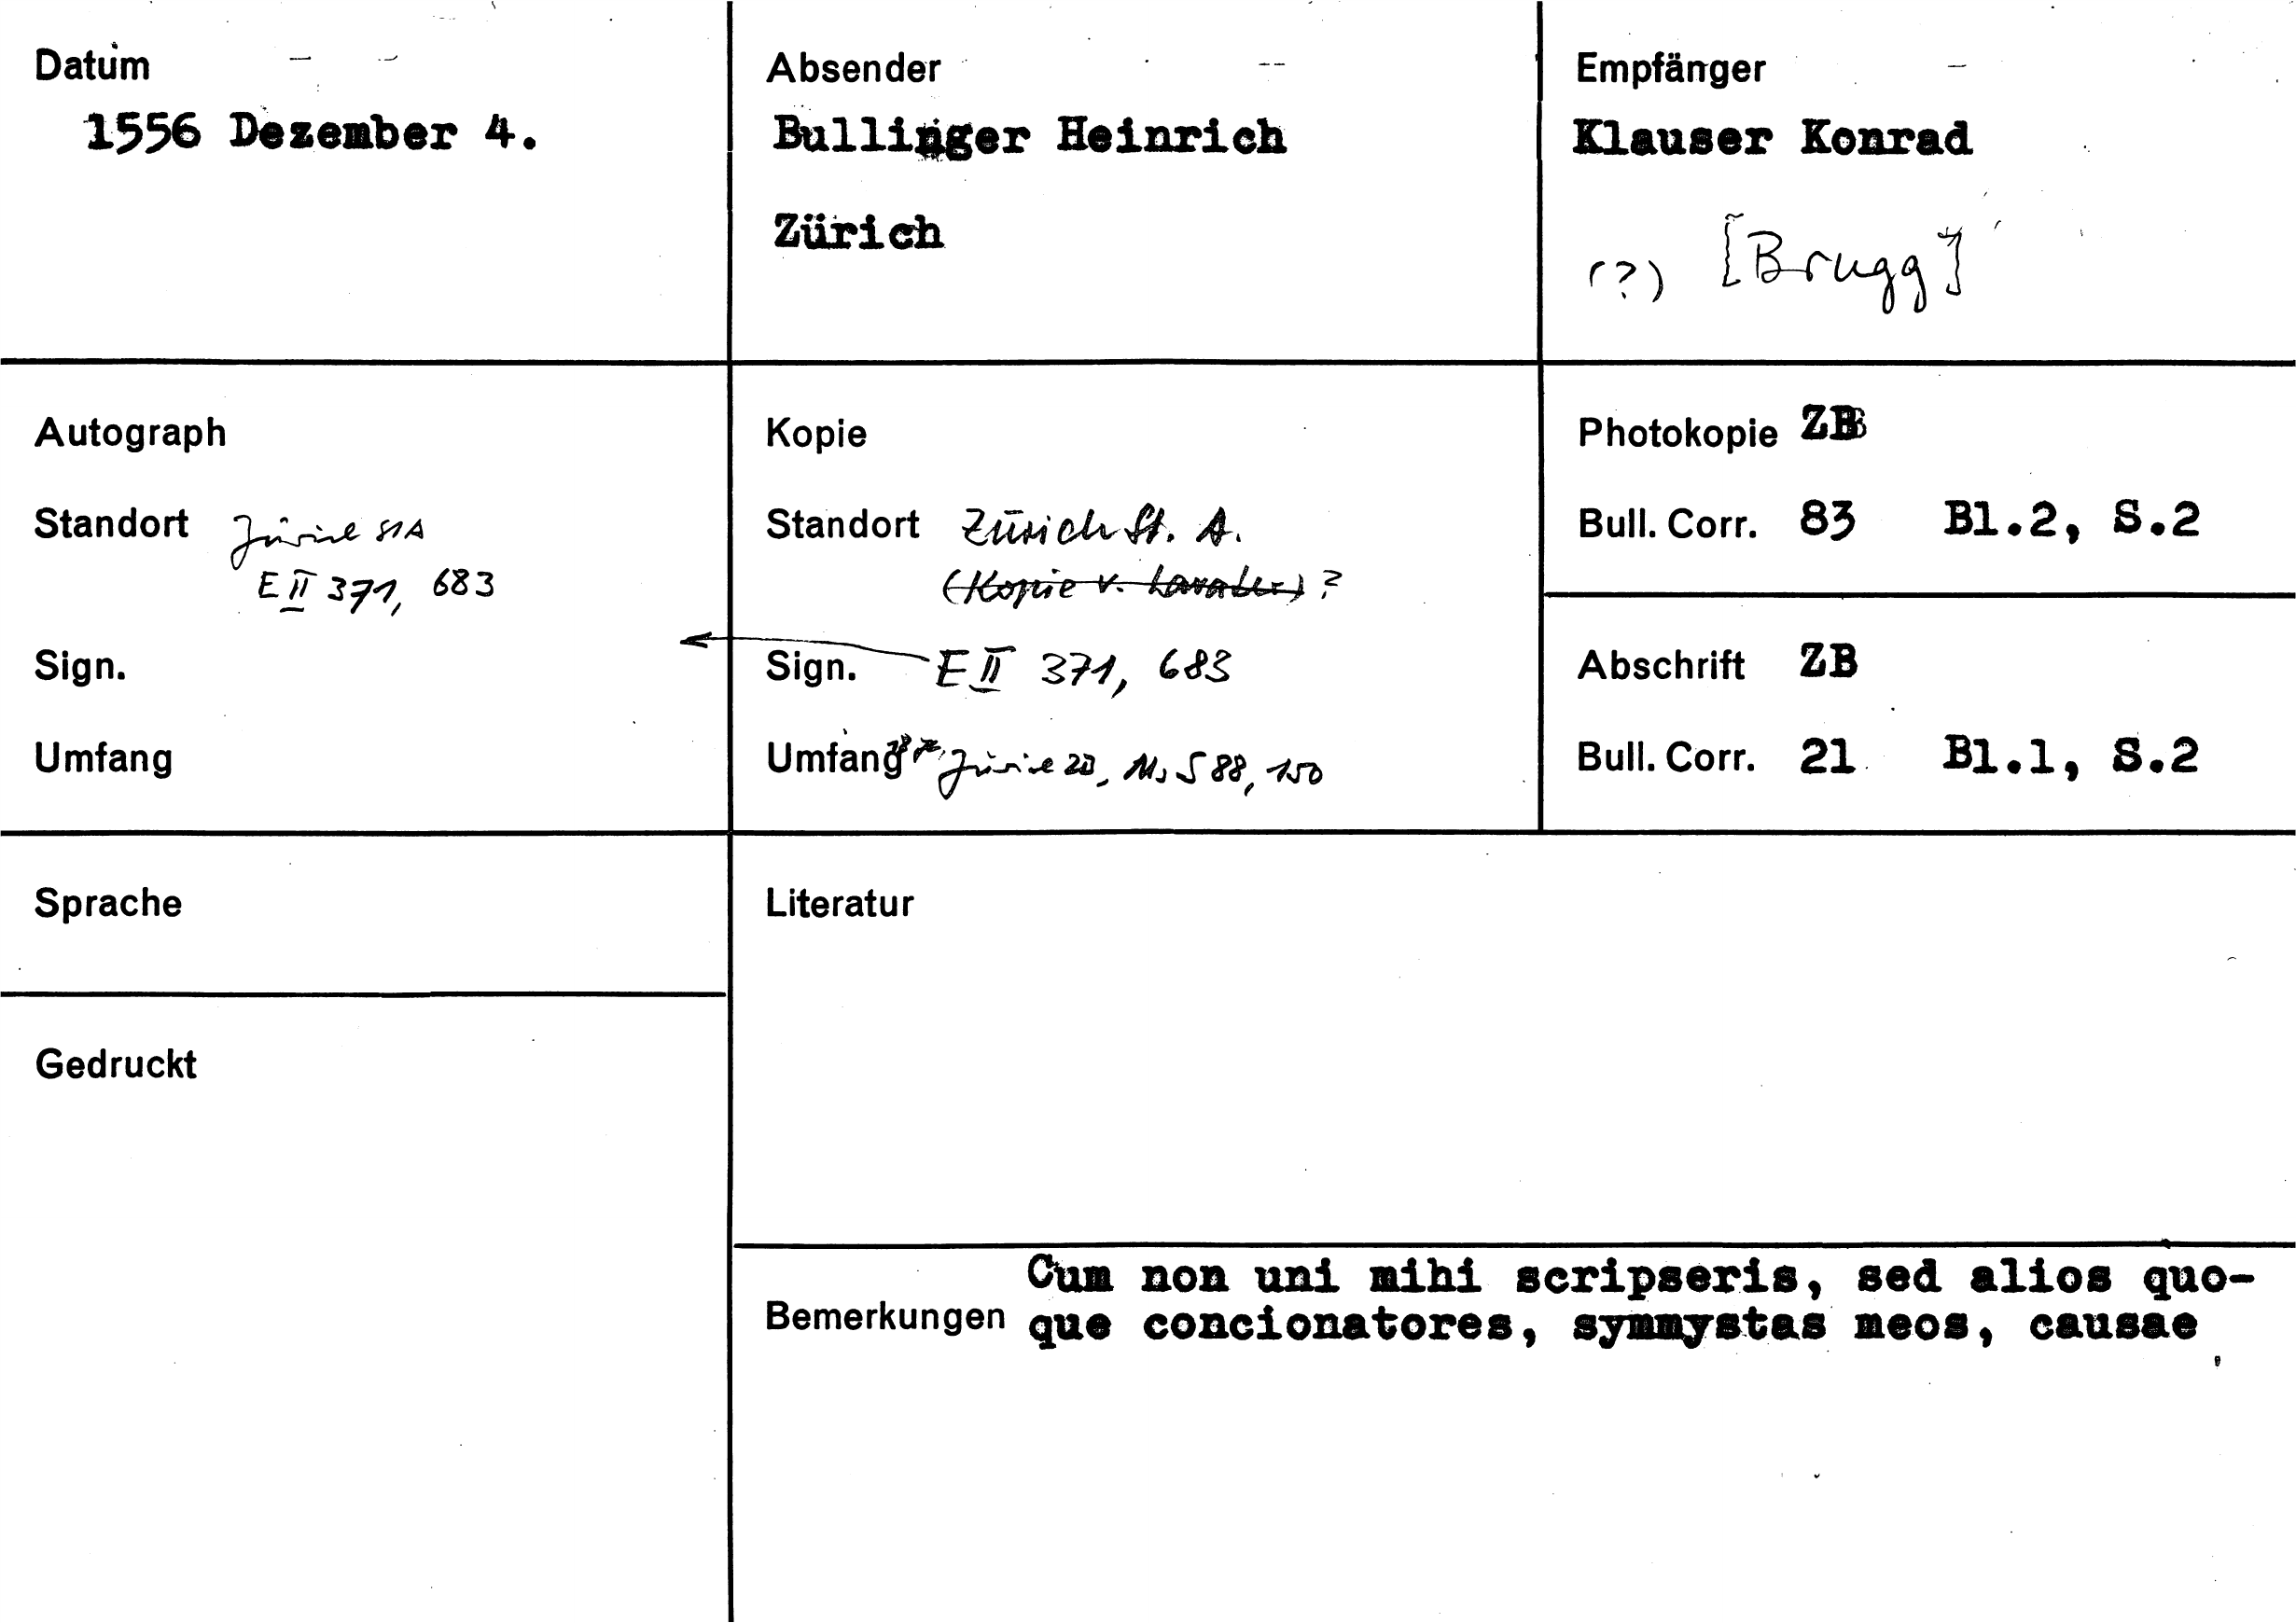 Datum
1556 Dezember 4.
Absender
Bullinger Heinrich
Zürich
Empfänger
Klauser Konrad
(?) [Brugg]
Autograph
Standort Zürich StA
E II 371, 683
Sign.
Umfang
Kopie
Standort Zürich St. A.
(Kopie v. Lavater)?
Sign. E II 371, 683
Umfang Zürich ZB, Ms S 88, 150
Photokopie ZB
Bull. Corr. 83 Bl.2, S.2
Abschrift ZB
Bull. Corr. 21 Bl.1, S.2
Sprache
Gedruckt
Literatur
Bemerkungen
Cum non uni mihi scripseris, sed alios quo-
que concionatores, symmystas meos, causae